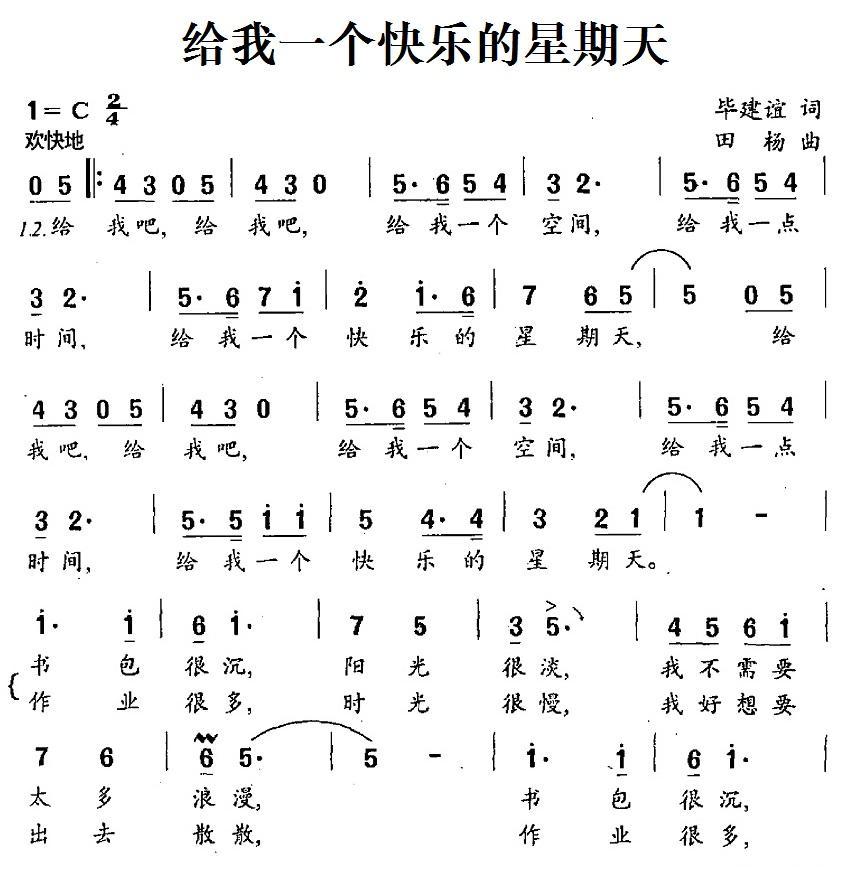 给我一个快乐的星期天
1= C 2/4
毕建谊 词
欢快地
田 杨 曲
0 5 |: 4 3 0 5 | 4 3 0 | 5· 6 5 4 | 3 2· | 5· 6 5 4 |
1.2.给 我吧, 给 我吧, 给我一个 空间, 给我一点
3 2· | 5· 6 7 i | 2 i· 6 | 7 6 5 | 5 0 5 |
时间, 给我一个 快 乐的 星 期天, 给
4 3 0 5 | 4 3 0 | 5· 6 5 4 | 3 2· | 5· 6 5 4 |
我吧, 给 我吧, 给我一个 空间, 给我一点
3 2· | 5· 5 i i | 5 4· 4 | 3 2 1 | 1 - |
时间, 给我一个 快 乐的 星 期天。
i· i | 6 i· | 7 5 | 3 5· | 4 5 6 i |
书 包 很沉, 阳 光 很淡, 我不需要
作 业 很多, 时 光 很慢, 我好想要
7 6 | 6 5· | 5 - | i· i | 6 i· |
太 多 浪漫, 书 包 很沉,
出 去 散散, 作 业 很多,